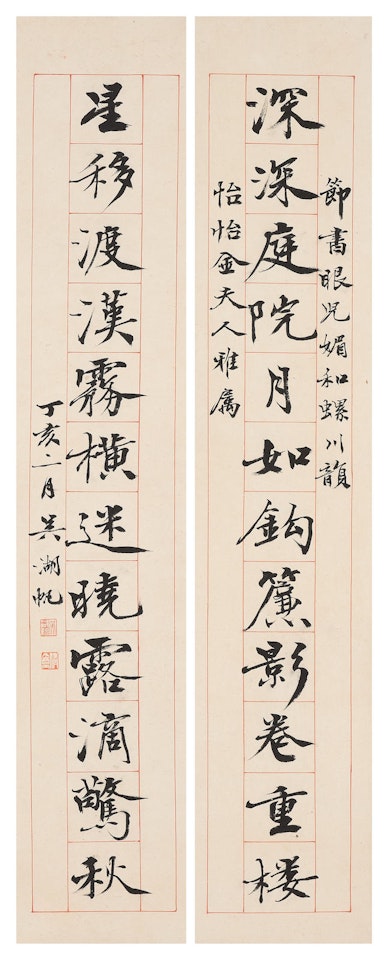 節書眼兒媚和螺川韻
深深庭院月如鈎簾影卷重楼
怡怡金夫人雅属
星移渡漢霧橫迷曉露滴驚秋
丁亥二月吳湖帆